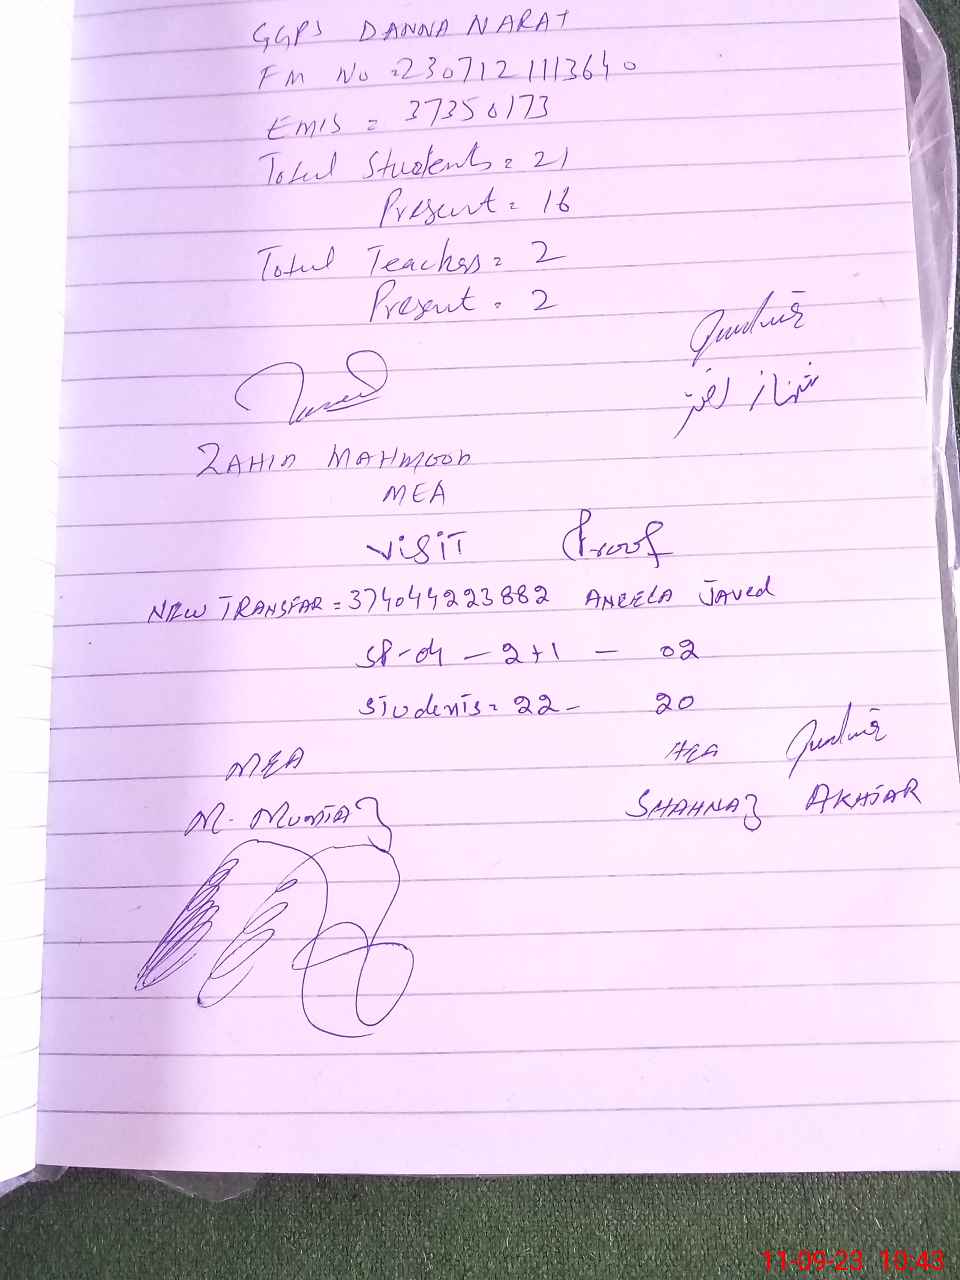 GGPS DANNA NARAT
FM No = 2307121113640
EMIS = 37350173
Total Students = 21
Present = 16
Total Teachers = 2
Present = 2
شہناز اختر
ZAHID MAHMOOD
MEA
VISIT Proof
NEW TRANSFAR = 374044223882 ANEELA JAVED
SP-04 - 2+1 - 02
STUDENTS = 22 - 20
MEA
M. MUMTAZ
SHAHNAZ AKHTAR
11-09-23 10:43